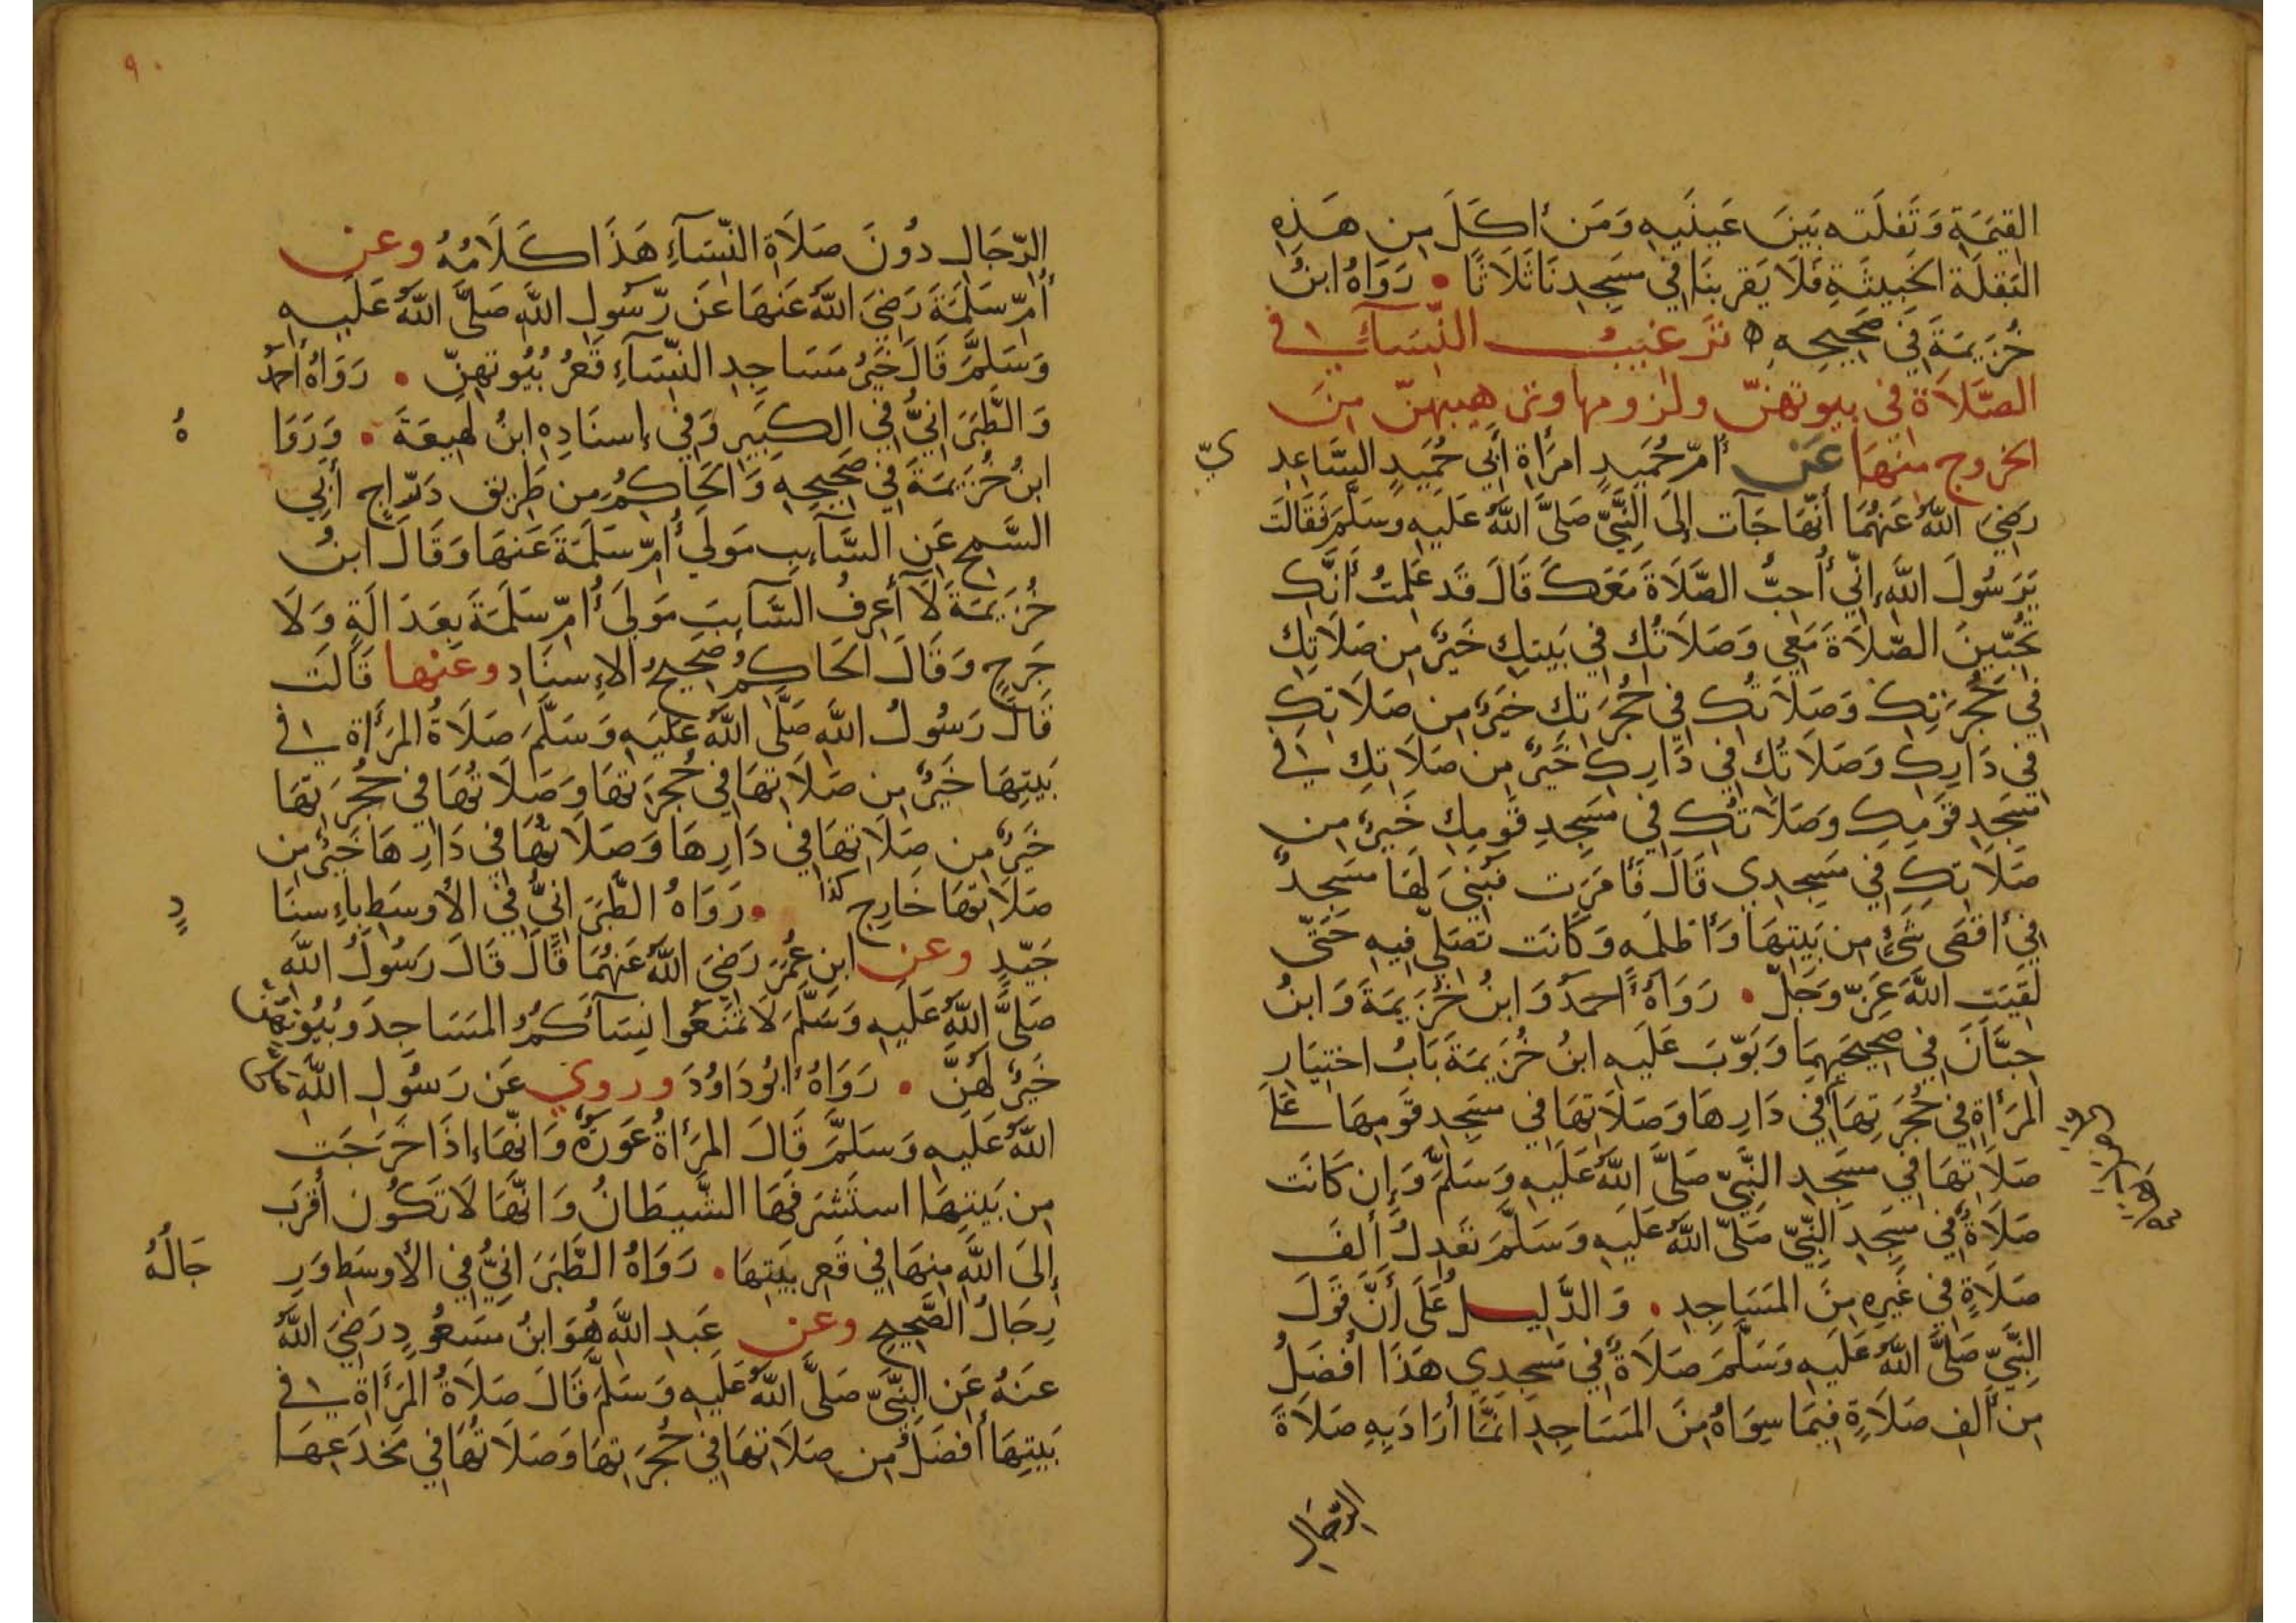 القِيَمَةِ وَتَفلَته بَينَ عَينَيهِ وَمَن أكَلَ مِن هَذِهِ
البَقلَة الخَبِيثَةِ فَلَا يَقربنَا فِي مَسجِدِنَا ثَلَاثًا • رَوَاهُ ابنُ
خُزَيمَةَ فِي صَحِيحِهِ ترغيبُ النِّسَآءِ في
الصَّلَاة في بيوتهنّ ولزومها وترهيبهنّ من
الخروج منها عَن أُمّ حُمَيدٍ امرَأة أبي حُمَيدٍ السَّاعِدِ
يّ
رَضِيَ اللَّهُ عَنهُمَا أنّهَا جَآت إلَى النَّبِيّ صَلَّى اللَّهُ عَلَيهِ وسَلَّمَ فَقَالَت
يَرَسُولَ اللَّهِ إنّي أُحِبُّ الصَّلَاةَ مَعَكَ قَالَ قَد عَلِمتُ أنَّكِ
تُحِبّينَ الصَّلَاةَ مَعِي وَصَلَاتُكِ فِي بَيتِكِ خَيرٌ مِن صَلَاتِكِ
فِي حُجرَتِكِ وَصَلَاتُكِ فِي حُجرَتِكِ خَيرٌ مِن صَلَاتِكِ
فِي دَارِكِ وَصَلَاتُكِ فِي دَارِكِ خَيرٌ مِن صَلَاتِكِ في
مَسجِدِ قَومِكِ وَصَلَاتُكِ فِي مَسجِدِ قَومِكِ خَيرٌ مِن
صَلَاتِكِ فِي مَسجِدِي قَالَ فَأمَرَت فَبُنِيَ لَهَا مَسجِدٌ
فِي أقصَى شَيءٍ مِن بَيتِهَا وَأظلَمِه وَكَانَت تُصَلّي فِيهِ حَتَّى
لَقِيَتِ اللَّهَ عَزّ وَجَلّ • رَوَاهُ أحمَدُ وَابنُ خُزَيمَةَ وَابنُ
حِبَّانَ فِي صَحِيحَيهِمَا وَبَوّبَ عَلَيهِ ابنُ خُزَيمَةَ بَابُ اختِيَارِ
المَرأةِ فِي حُجرَتِهَا فِي دَارِهَا وَصَلَاتِهَا فِي مَسجِدِ قَومِهَا عَلَى
صَلَاتِهَا فِي مَسجِدِ النَّبِيّ صَلَّى اللَّهُ عَلَيهِ وَسَلَّمَ وَإن كَانَت
صَلَاةٌ فِي مَسجِدِ النَّبِيّ صَلَّى اللَّهُ عَلَيهِ وَسَلَّمَ تَعدِلُ ألفَ
صَلَاةٍ فِي غَيرِهِ مِنَ المَسَاجِدِ • وَالدَّلِيلُ عَلَى أنَّ قَولَ
النَّبِيّ صَلَّى اللَّهُ عَلَيهِ وَسَلَّمَ صَلَاةٌ فِي مَسجِدِي هَذَا أفضَلُ
مِن ألفِ صَلَاةٍ فِيمَا سِوَاهُ مِنَ المَسَاجِدِ انَّمَا أرَادَ بِهِ صَلَاةَ
الرّجَالِ
٩٠
الرّجَالِ دُونَ صَلَاةِ النِّسَآءِ هَذَا كَلَامُهُ وعن
أُمّ سَلَمَةَ رَضِيَ اللَّهُ عَنهَا عَن رَسُولِ اللَّهِ صَلَّى اللَّهُ عَلَيهِ
وَسَلَّمَ قَالَ خَيرُ مَسَاجِدِ النِّسَآءِ قَعرُ بُيُوتِهِنّ • رَوَاهُ أحمَدُ
وَالطَّبَرَانِيُّ فِي الكَبِيرِ وَفِي إسنَادِهِ ابنُ لَهِيعَةَ • وَرَوَا
هُ
ابنُ خُزَيمَةَ فِي صَحِيحِهِ وَالحَاكِمُ مِن طَرِيقِ دَرَّاجٍ أَبِي
السَّمحِ عَنِ السَّآئِبِ مَولَى أُمّ سَلَمَةَ عَنهَا وَقَالَ ابنُ
خُزَيمَةَ لَآ أعرِفُ السَّآئِبَ مَولَى أُمّ سَلَمَةَ بِعَدَالَةٍ وَلَا
جَرحٍ وَقَالَ الحَاكِمُ صَحِيحُ الإسنَادِ وعنها قَالَت
قَالَ رَسُولُ اللَّهِ صَلَّى اللَّهُ عَلَيهِ وَسَلَّمَ صَلَاةُ المَرأةِ في
بَيتِهَا خَيرٌ مِن صَلَاتِهَا فِي حُجرَتِهَا وَصَلَاتُهَا فِي حُجرَتِهَا
خَيرٌ مِن صَلَاتِهَا فِي دَارِهَا وَصَلَاتُهَا فِي دَارِهَا خَيرٌ مِن
صَلَاتِهَا خَارِج كذا • رَوَاهُ الطَّبَرَانِيُّ فِي الأوسَطِ بِإسنَا
دٍ
جَيّدٍ وعن ابنِ عُمَرَ رَضِيَ اللَّهُ عَنهُمَا قَالَ قَالَ رَسُولُ اللَّهِ
صَلَّى اللَّهُ عَلَيهِ وَسَلَّمَ لَا تَمنَعُوا نِسَآءَكُمُ المَسَاجِدَ وَبُيُوتُهُنَّ
خَيرٌ لَهُنَّ • رَوَاهُ أبُو دَاوُدَ وروي عَن رَسُولِ اللَّهِ صَلَّى
اللَّهُ عَلَيهِ وَسَلَّمَ قَالَ المَرأةُ عَورَةٌ وَانَّهَا إذَا خَرَجَت
مِن بَيتِهَا استَشرَفَهَا الشَّيطَانُ وَانَّهَا لَا تَكُونُ أقرَبَ
إلَى اللَّهِ مِنهَا فِي قَعرِ بَيتِهَا • رَوَاهُ الطَّبَرَانِيُّ فِي الأوسَطِ وَرِ
جَالُهُ
رِجَالُ الصَّحِيحِ وعن عَبدِ اللَّهِ هُوَ ابنُ مَسعُودٍ رَضِيَ اللَّهُ
عَنهُ عَنِ النَّبِيّ صَلَّى اللَّهُ عَلَيهِ وَسَلَّمَ قَالَ صَلَاةُ المَرأةِ في
بَيتِهَا أفضَلُ مِن صَلَاتِهَا فِي حُجرَتِهَا وَصَلَاتُهَا فِي مَخدَعِهَا